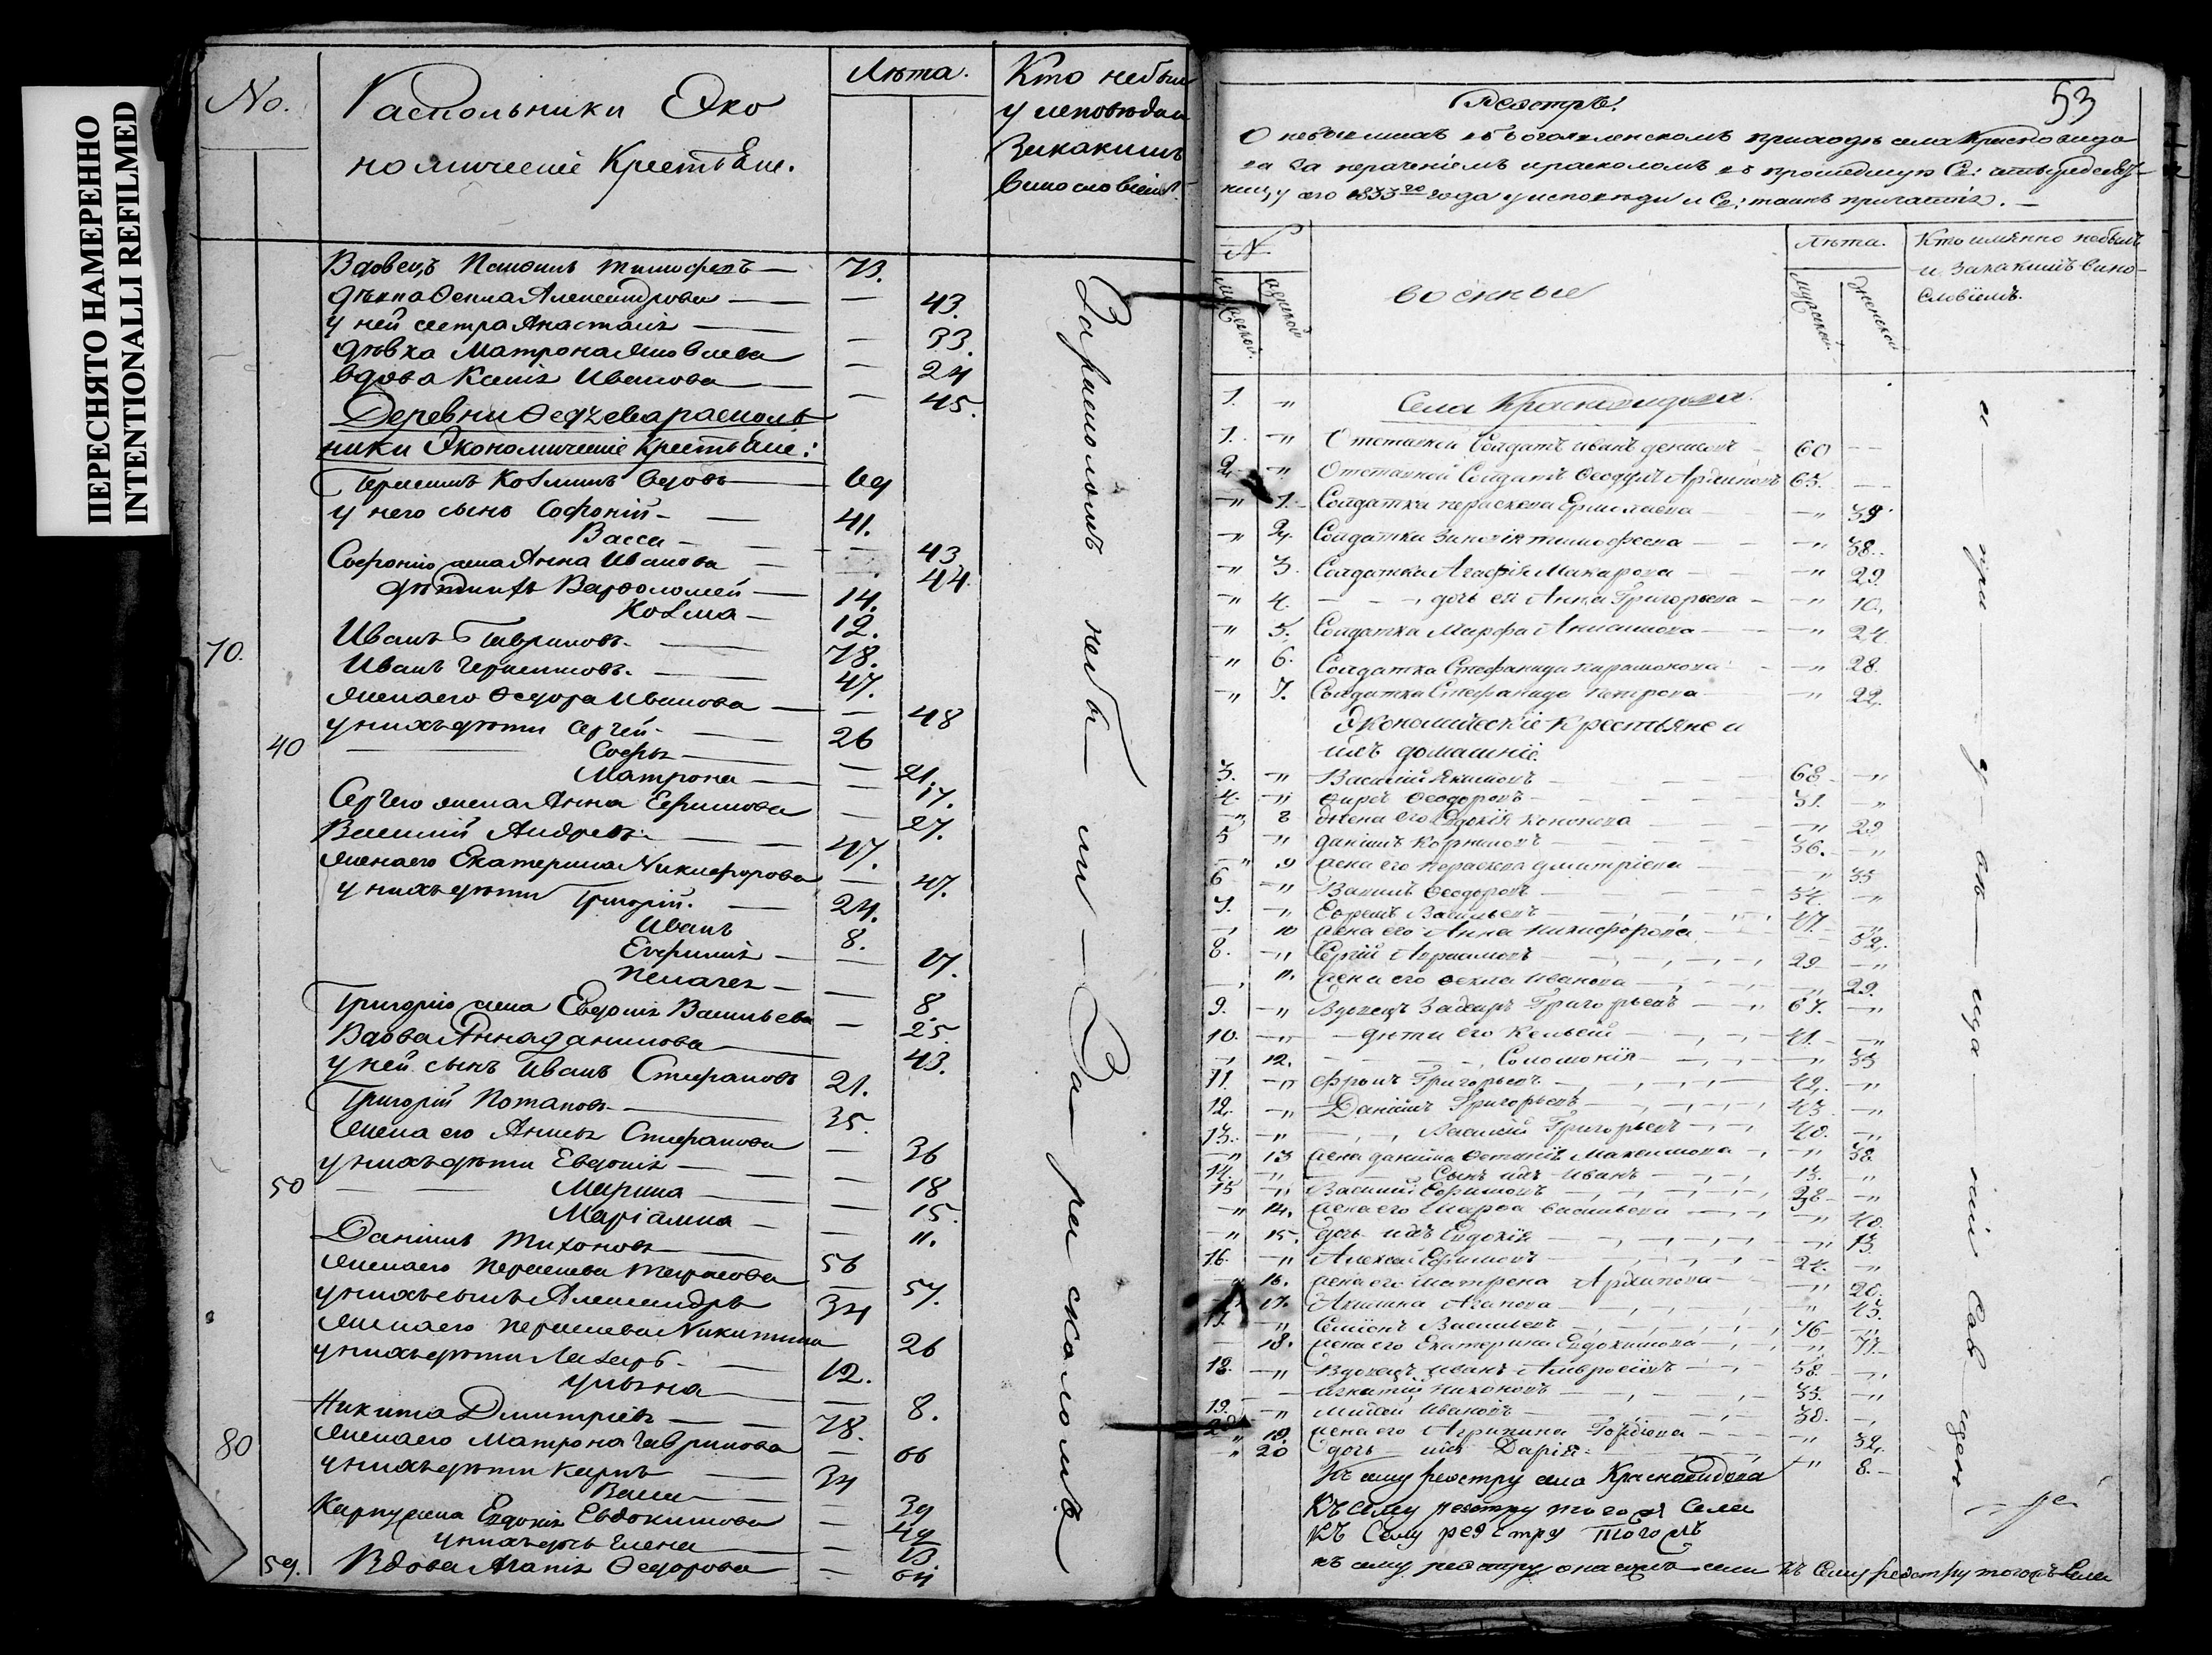 ПЕРЕСНЯТО НАМЕРЕННО
INTENTIONALLI REFILMED
No.
Раскольники Эко
номическіе Крестьяне.
Лѣта.
Кто небыл
у исповѣди
Зикакимъ
Винословіем
Вдовецъ Тимофеевъ 73.
дѣвка Ѳекла Александрова 43.
у ней сестра Анастасія 33.
дѣвка Матрона Яковлева 24
вдова Иванова 45.
Деревни расколь
ники Экономическіе Крестьяне:
Герасимъ Козминъ вдовъ 69
у него сынъ Софроній 41.
Васса 43
Софронію жена Анна Иванова 44.
дѣти ихъ Варфоломей 14.
Козма 12.
70. Иванъ Гавриловъ 78.
Иванъ Герасимовъ 47.
жена его Ѳедора Иванова 48
у нихъ дѣти Сергей 26
40 Софья 21.
Матрона 17.
Сергею жена Анна Ефимова 27.
Василій Андреевъ 47.
жена его Екатерина Никифорова 47.
у нихъ дѣти Григорій 24.
Иванъ 8.
Евфимія 17.
Пелагея 8.
Григорію жена Евдокія Васильева 25.
Вдова Анна Данилова 43.
у ней сынъ Иванъ Стефановъ 21.
Григорій Потаповъ 35.
жена его Анисья Стефанова 36
у нихъ дѣти Евдокія 18
50 Марина 15.
Маріамна 11.
Даніилъ Тихоновъ 56
жена его Параскева Тарасова 57.
у нихъ сынъ Александръ 34
жена его Параскева Никитина 26
у нихъ дѣти Лазарь 12.
Ульяна 8.
Никита Дмитріевъ 78.
80 жена его Матрона Гаврилова 66
у нихъ дѣти Карпъ 34
Васса 39
Карпу жена Евдокія Евдокимова 49
у нихъ дочь Елена 13.
59. Вдова Агапія Ѳедорова 64
За расколомъ небы ли За расколомъ
53
Реэстръ.
О небывшихъ въ Богоявленскомъ приходѣ села Красновидо
ва За нераченіемъ и расколомъ въ прошедшую Св: четыредесят
ницу сего 1833го года у исповѣди и Св: таинъ причастія.
№
мужеской. женской
военные
Лѣта.
мужеской. женской
Кто имянно небылъ
и Закакимъ вино-
словіемъ.
1. " Села Красновидова.
1. " Отставной Солдатъ Иванъ Денисовъ 60
2. " Отставной Солдатъ Ѳеодулъ Архиповъ 65.
" 1. Солдатка Параскева Ермолаева " 39
" 2. Солдатка Зиновія Тимофеева " 38.
" 3. Солдатка Агафія Макарова " 29.
" 4. дочь ея Анна Григорьева " 10.
" 5. Солдатка Марфа Анисимова " 24.
" 6. Солдатка Стефанида Парамонова " 28.
" 7. Солдатка Стефанида Петрова " 22.
Экономическіе Крестьяне и
ихъ домашніе.
3. " Василій Якимовъ 68 "
4. " Ѳеодоровъ 31. "
" 8 жена его Евдокія Кононова " 29
5 " Даніилъ Корниловъ 36. "
" 9 жена его Параскева Дмитріева " 35
6 " Ѳеодоровъ 54. "
7. " Ефремъ Васильевъ 47. "
10 жена его Анна Никифорова 52.
8. " Сергій Абрамовъ 29 "
" 11. жена его Ѳекла Иванова " 29.
9. " Вдовецъ Захаръ Григорьевъ 67. "
10. " дѣти его 41. "
" 12. Соломонія " 33
11. " Фролъ Григорьевъ 42. "
12. " Даніилъ Григорьевъ 43 "
13. " Василій Григорьевъ 40. "
" 13 жена Данила Максимова " 38.
14. " Сынъ ихъ Иванъ 13. "
15 " Василій Ефимовъ 38 "
" 14. жена его Марфа Васильева " 40.
" 15. дочь ихъ Евдокія " 13.
16. " Алексей Ефимовъ 24. "
" 16. жена его Матрена Архипова " 20.
" 17. Акилина Агапова " 43.
17. " Семіонъ Васильевъ 76 "
18. жена его Екатерина Евдокимова " 71.
18. " Вдовецъ Иванъ Амвросіевъ 58. "
Игнатій Никоновъ 35. "
19. " Михей Ивановъ 30. "
20 19. жена его Агрипина " 32.
" 20 дочь ихъ Дарія " 8.
Къ сему реэстру села Красновидова
Къ сему реэстру того жъ Села
Къ Сему реэстру того жъ
къ сему реэстру онаго жъ села Къ Сему реэстру того жъ Села